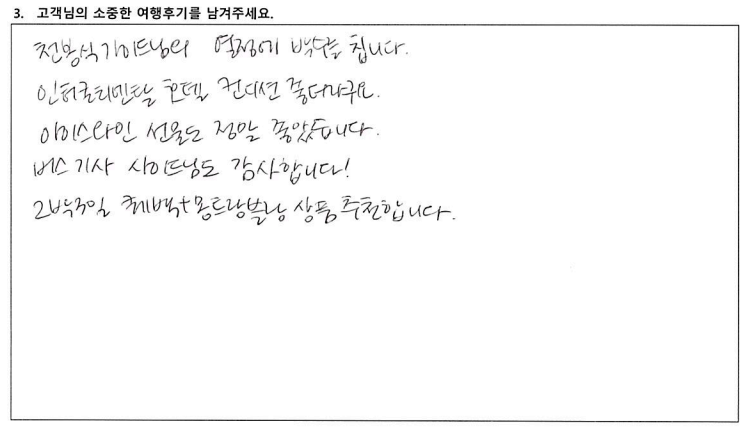 3. 고객님의 소중한 여행후기를 남겨주세요.
전봉식가이드님의 열정에 박수를 칩니다.
인터콘티넨탈 호텔 컨디션 좋더라구요.
아이스와인 선물도 정말 좋았습니다.
버스기사 사이드님도 감사합니다!
2박3일 퀘벡+몽트랑블랑 상품 추천합니다.